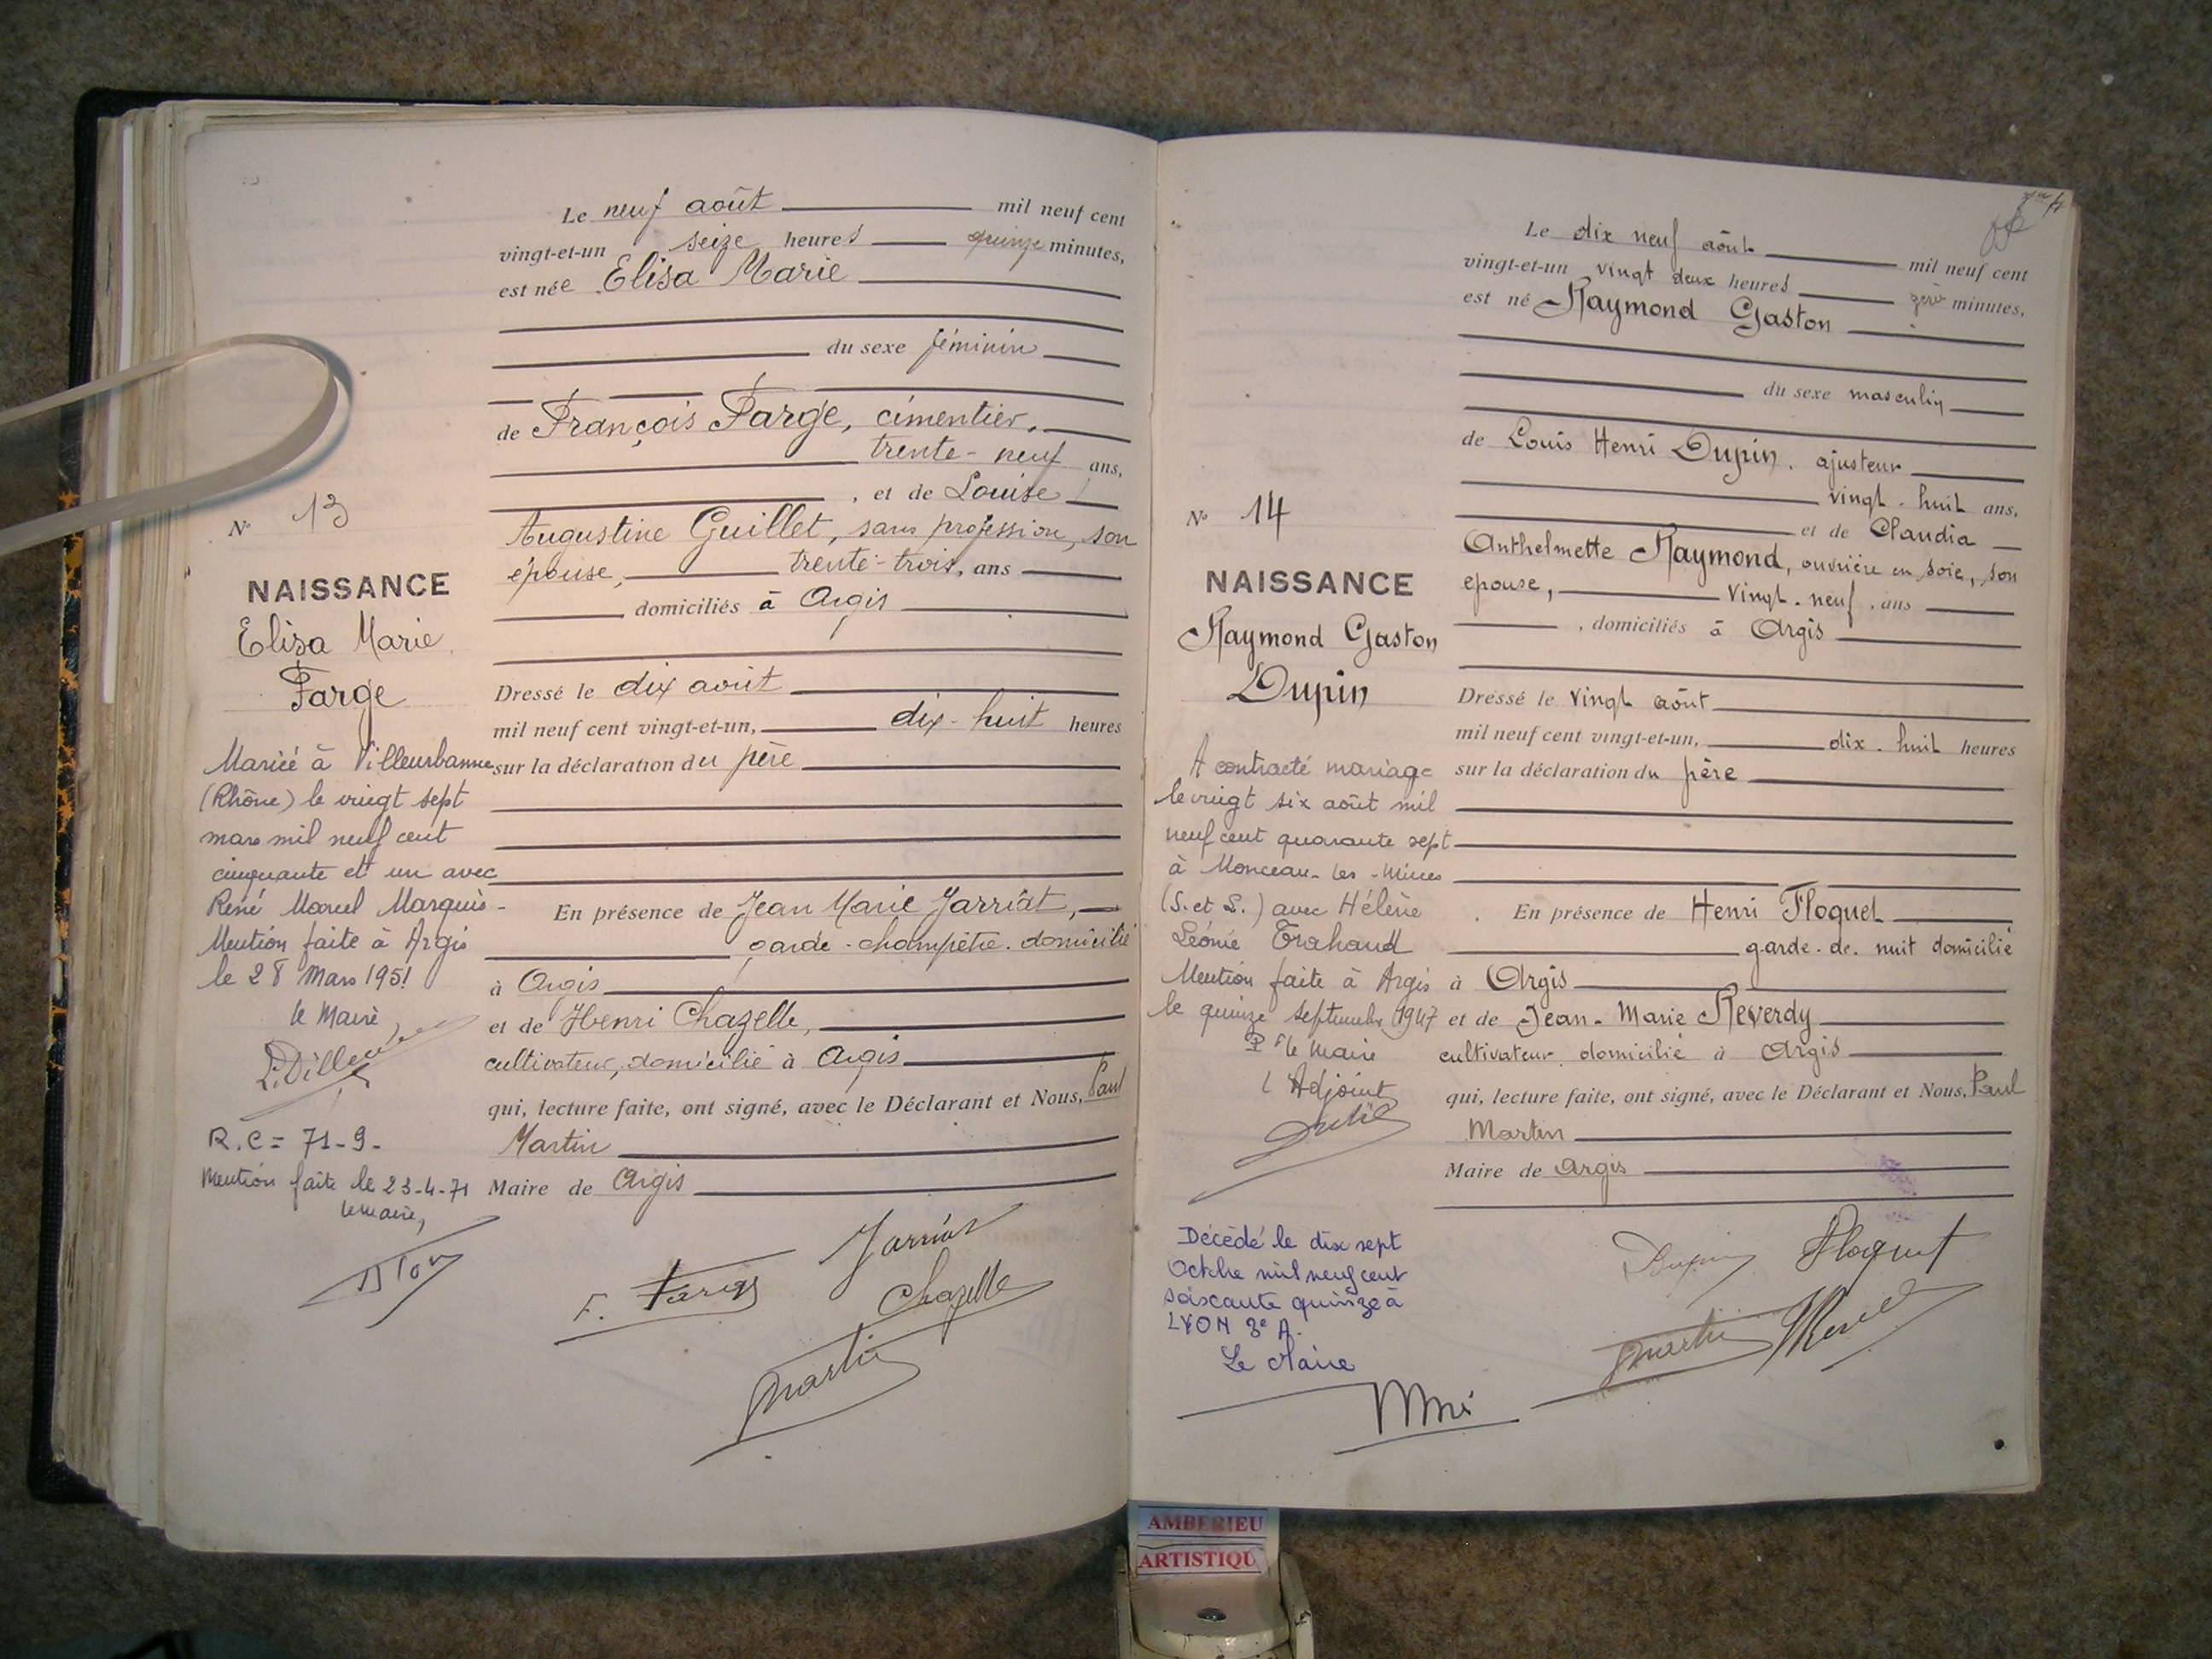 Le neuf août mil neuf cent
vingt-et-un seize heures quinze minutes,
est née Elisa Marie
du sexe féminin
de François Farge, cimentier,
trente-neuf ans,
, et de Louise
Augustine Guillet, sans profession, son
épouse, trente-trois, ans
domiciliés à Argis
Dressé le dix août
mil neuf cent vingt-et-un, dix-huit heures
sur la déclaration du père
En présence de Jean Marie Jarriat,
garde-champêtre domicilié
à Argis
et de Henri Chazelle,
cultivateur, domicilié à Argis
qui, lecture faite, ont signé, avec le Déclarant et Nous, Paul
Martin
Maire de Argis
F. Farge
Jarriat
Chazelle
Martin
N° 13
NAISSANCE
Elisa Marie
Farge
Mariée à Villeurbanne
(Rhône) le vingt sept
mars mil neuf cent
cinquante et un avec
René Marcel Marquis-
Mention faite à Argis
le 28 Mars 1951
le Maire,
R.C = 71-9-
Mention faite le 23-4-71
le maire,
Le dix neuf août mil neuf cent
vingt-et-un vingt deux heures zéro minutes,
est né Raymond Gaston
du sexe masculin
de Louis Henri Dupin, ajusteur
vingt-huit ans,
et de Claudia
Anthelmette Raymond, ouvrière en soie, son
epouse, vingt-neuf, ans
, domiciliés à Argis
Dressé le vingt août
mil neuf cent vingt-et-un, dix-huit heures
sur la déclaration du père
En présence de Henri Floquet
garde-de-nuit domicilié
à Argis
et de Jean-Marie Reverdy
cultivateur domicilié à Argis
qui, lecture faite, ont signé, avec le Déclarant et Nous, Paul
Martin
Maire de Argis
Dupin
Floquet
Martin
N° 14
NAISSANCE
Raymond Gaston
Dupin
A contracté mariage
le vingt six août mil
neuf cent quarante sept
à Monceau-les-Mines
(S. et L.) avec Hélène
Léonie Trahand
Mention faite à Argis
le quinze septembre 1947
Pr le Maire
l'Adjoint
Décédé le dix sept
Octobre mil neuf cent
soixante quinze à
LYON 3e A.
Le Maire
AMBERIEU
ARTISTIQU